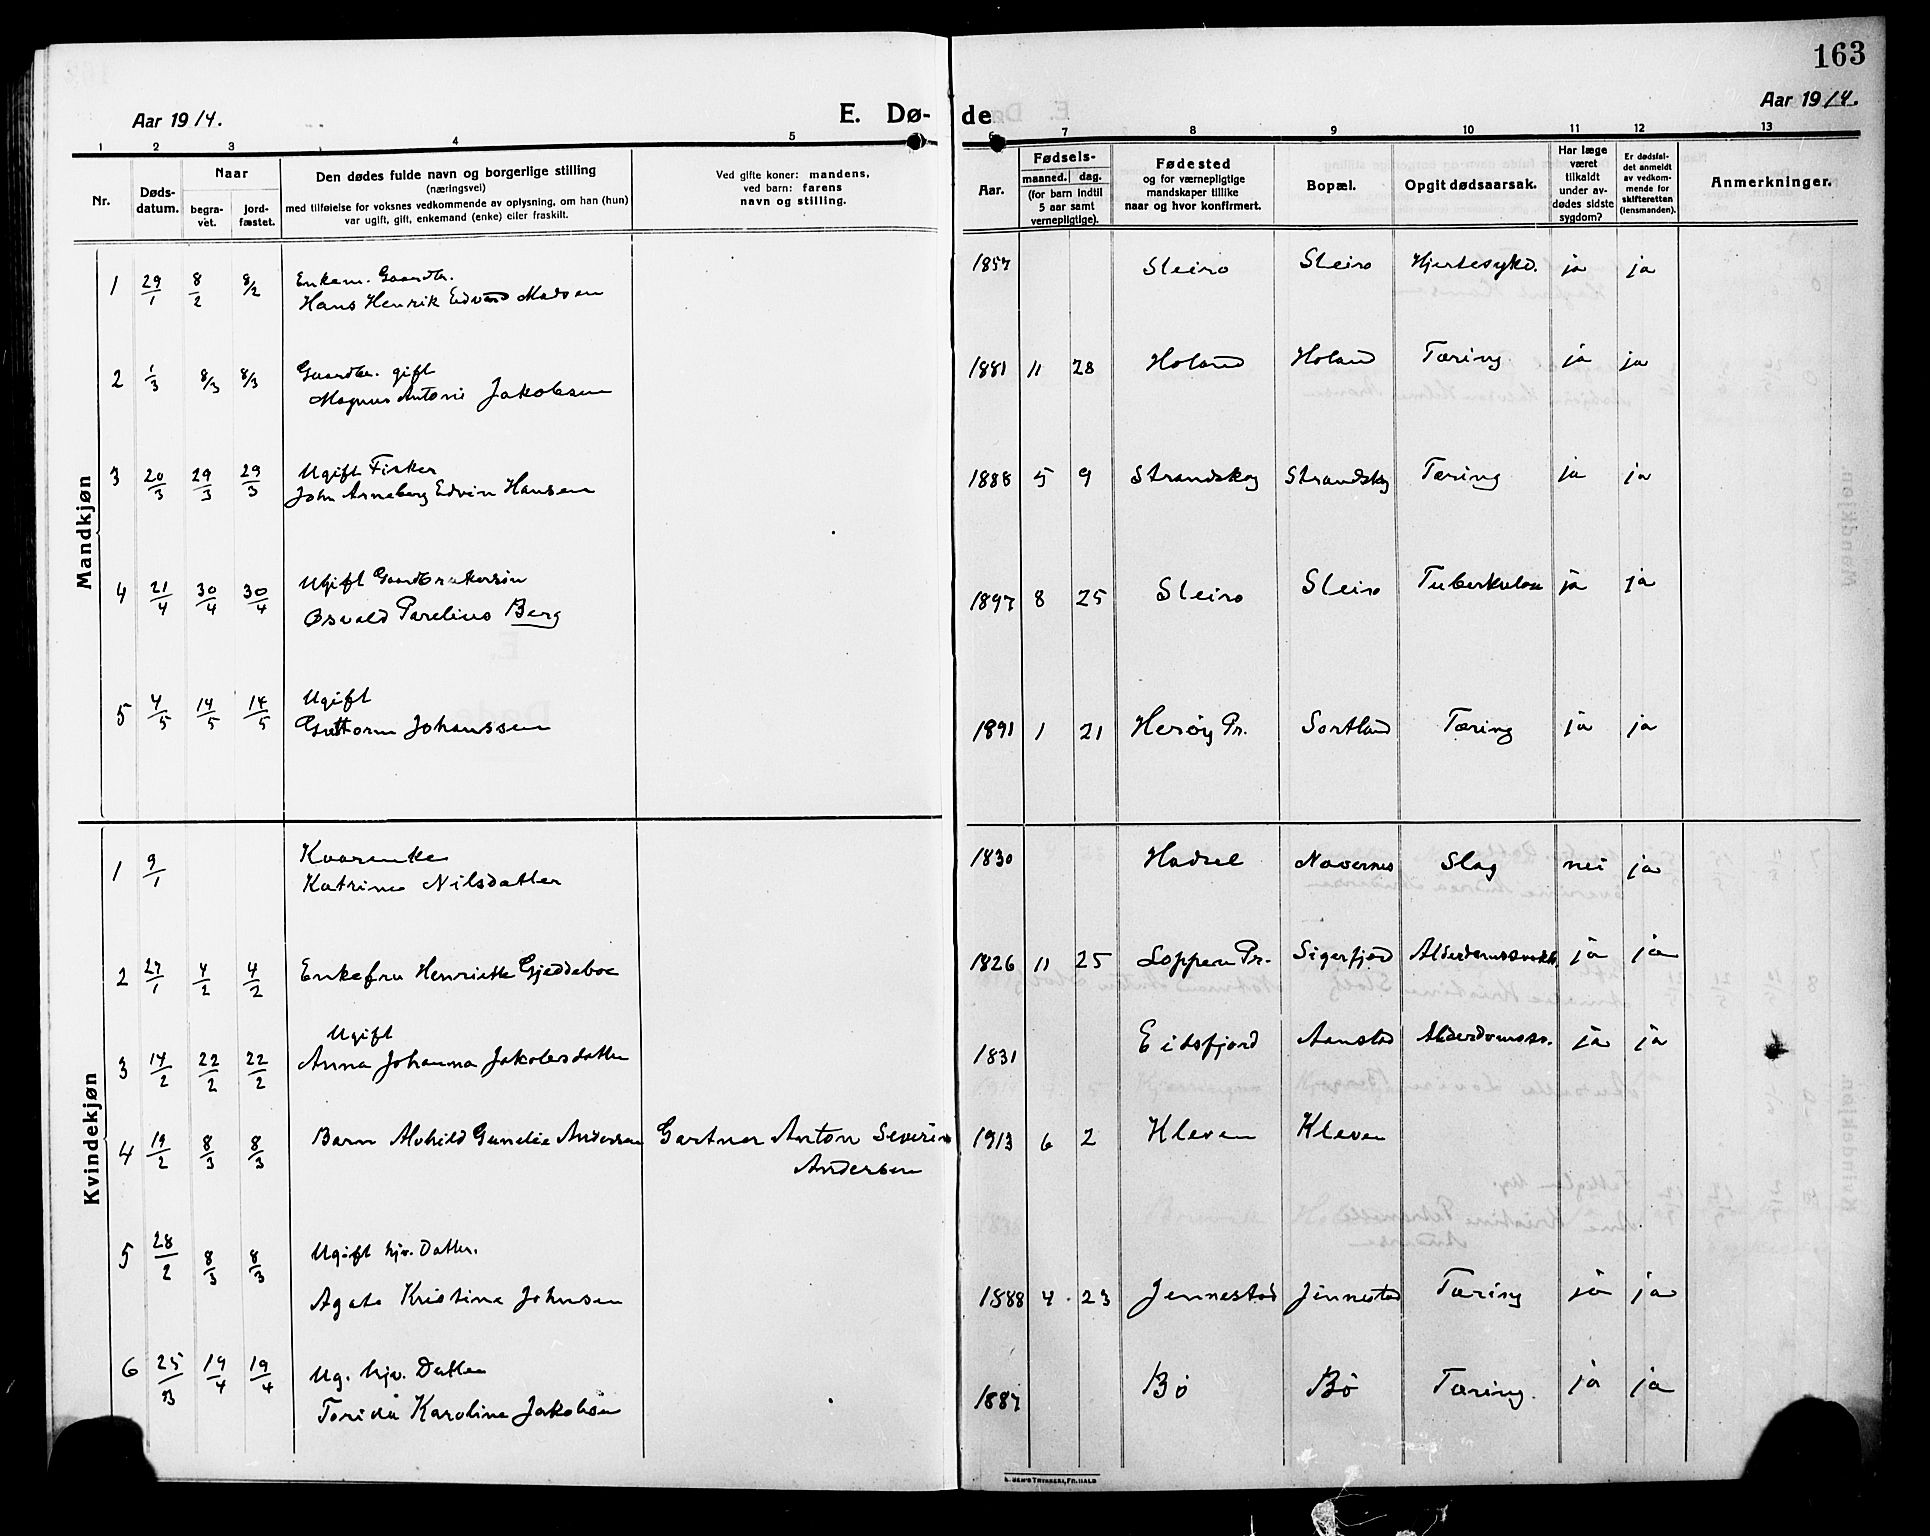 163
Aar 1914.
E. Dø-
de
Aar 1914.
1 2 3 4 5 6 7 8 9 10 11 12 13
Nr.
Døds-
datum.
Naar
begra-
vet.
jord-
fæstet.
Den dødes fulde navn og borgerlige stilling
(næringsvei)
med tilføielse for voksnes vedkommende av oplysning, om han (hun)
var ugift, gift, enkemand (enke) eller fraskilt.
Ved gifte koner: mandens,
ved barn: farens
navn og stilling.
Aar.
Fødsels-
maaned. dag.
(for barn indtil
5 aar samt
vernepligtige).
Fødested
og for værnepligtige
mandskaper tillike
naar og hvor konfirmert.
Bopæl.
Opgit dødsaarsak.
Har læge
været
tilkaldt
under av-
dødes sidste
sygdom?
Er dødsfal-
det anmeldt
av vedkom-
mende for
skifteretten
(lensmanden).
Anmerkninger.
Mandkjøn
1 29/1 8/2 8/2 Enkem. Gaardbr.
Hans Henrik Edvard Madsen
1857 Sleiro Sleiro Hjertesykd. ja ja
2 1/3 8/3 8/3 Gaardbr. gift
Magnus Antoni Jakobsen
1881 11 28 Holand Holand Tæring ja ja
3 20/3 29/3 29/3 Ugift Fisker
John Arneberg Edvin Hansen
1888 5 9 Strandskog Strandskog Tæring ja ja
4 21/4 30/4 30/4 Ugift Gaardbrukersøn
Osvald Parelius Berg
1897 8 25 Sleiro Sleiro Tuberkulose ja ja
5 4/5 14/5 14/5 Ugift
Guttorm Johanssen
1891 1 21 Herøy Pr. Sortland Tæring ja ja
Kvindekjøn
1 9/1 Kvarenke
Katrine Nilsdatter
1830 Hadsel Navernes Slag nei ja
2 27/1 4/2 4/2 Enkefru Henriette Gjeddeboe
1826 11 25 Loppen Pr. Sigerfjord Alderdomssvakh. ja ja
3 14/2 22/2 22/2 Ugift
Anna Johanna Jakobsdatter
1831 Eidsfjord Aanstad Alderdomssv. ja ja
4 19/2 8/3 8/3 Barn Alvhild Gunelie Andersen Gartner Anton Severin
Andersen
1913 6 2 Kleven Kleven
5 28/2 8/3 8/3 Ugift hjv. Datter.
Agate Kristine Johnsen
1888 4 23 Jennestad Jennestad Tæring ja ja
6 25/3 19/4 19/4 Ug. hjv. Datter
Karoline Jakobsen
1887 Bø Bø Tæring. ja ja